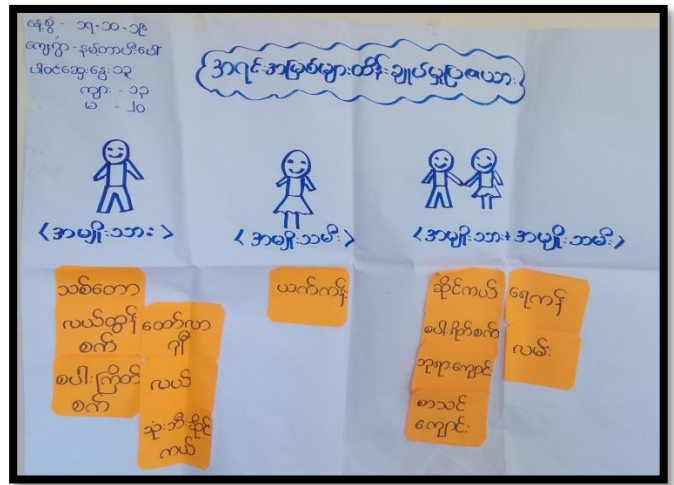 နေ့စွဲ - ၁၇-၁၀-၁၉
ကျေးရွာ - နမ်တာယီပေါ်
ပါဝင်ဆွေးနွေးသူ
ကျား - ၁၃
မ - ၂၀
အရင်းအမြစ်များထိန်းချုပ်မှုပြဇယား
<အမျိုးသား>
<အမျိုးသမီး>
<အမျိုးသား+အမျိုးသမီး>
သစ်တော
လယ်ထွန်
စက်
စပါးကြိတ်
စက်
ထော်လာ
ဂျီ
လယ်
သုံးဘီးဆိုင်
ကယ်
ယက်ကန်း
ဆိုင်ကယ်
စပါးရိတ်စက်
ဘုရားကျောင်း
စာသင်
ကျောင်း
ရေကန်
လမ်း